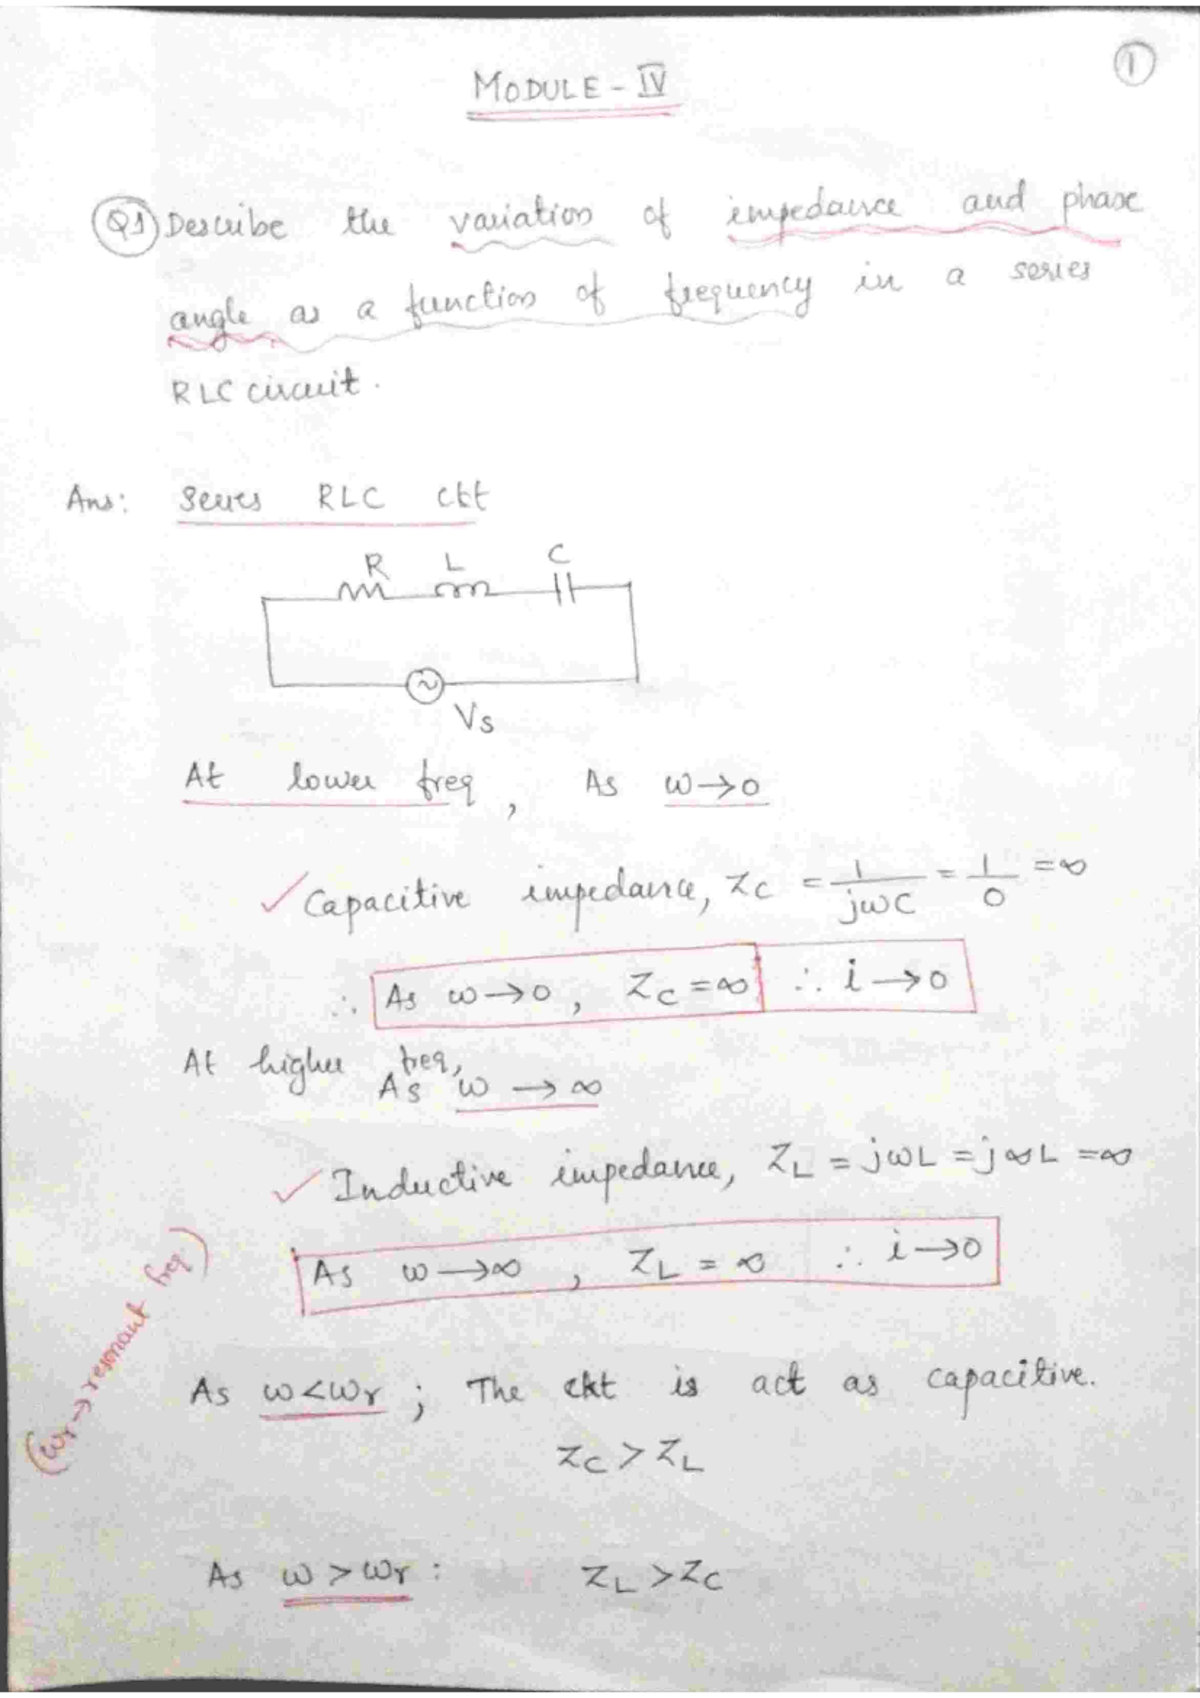 ①
MODULE - IV
Q1 Describe the variation of impedance and phase
angle as a function of frequency in a series
RLC circuit.
Ans: Series RLC ckt
R L C
~
Vs
At lower freq, As ω→0
✓ Capacitive impedance, ZC = 1/jωC = 1/0 = ∞
∴ As ω→0, ZC = ∞ ∴ i→0
At higher freq,
As ω → ∞
✓ Inductive impedance, ZL = jωL = j∞L = ∞
As ω→∞, ZL = ∞ ∴ i→0
(ωr → resonant freq)
As ω<ωr ; The ckt is act as capacitive.
ZC > ZL
As ω > ωr : ZL > ZC